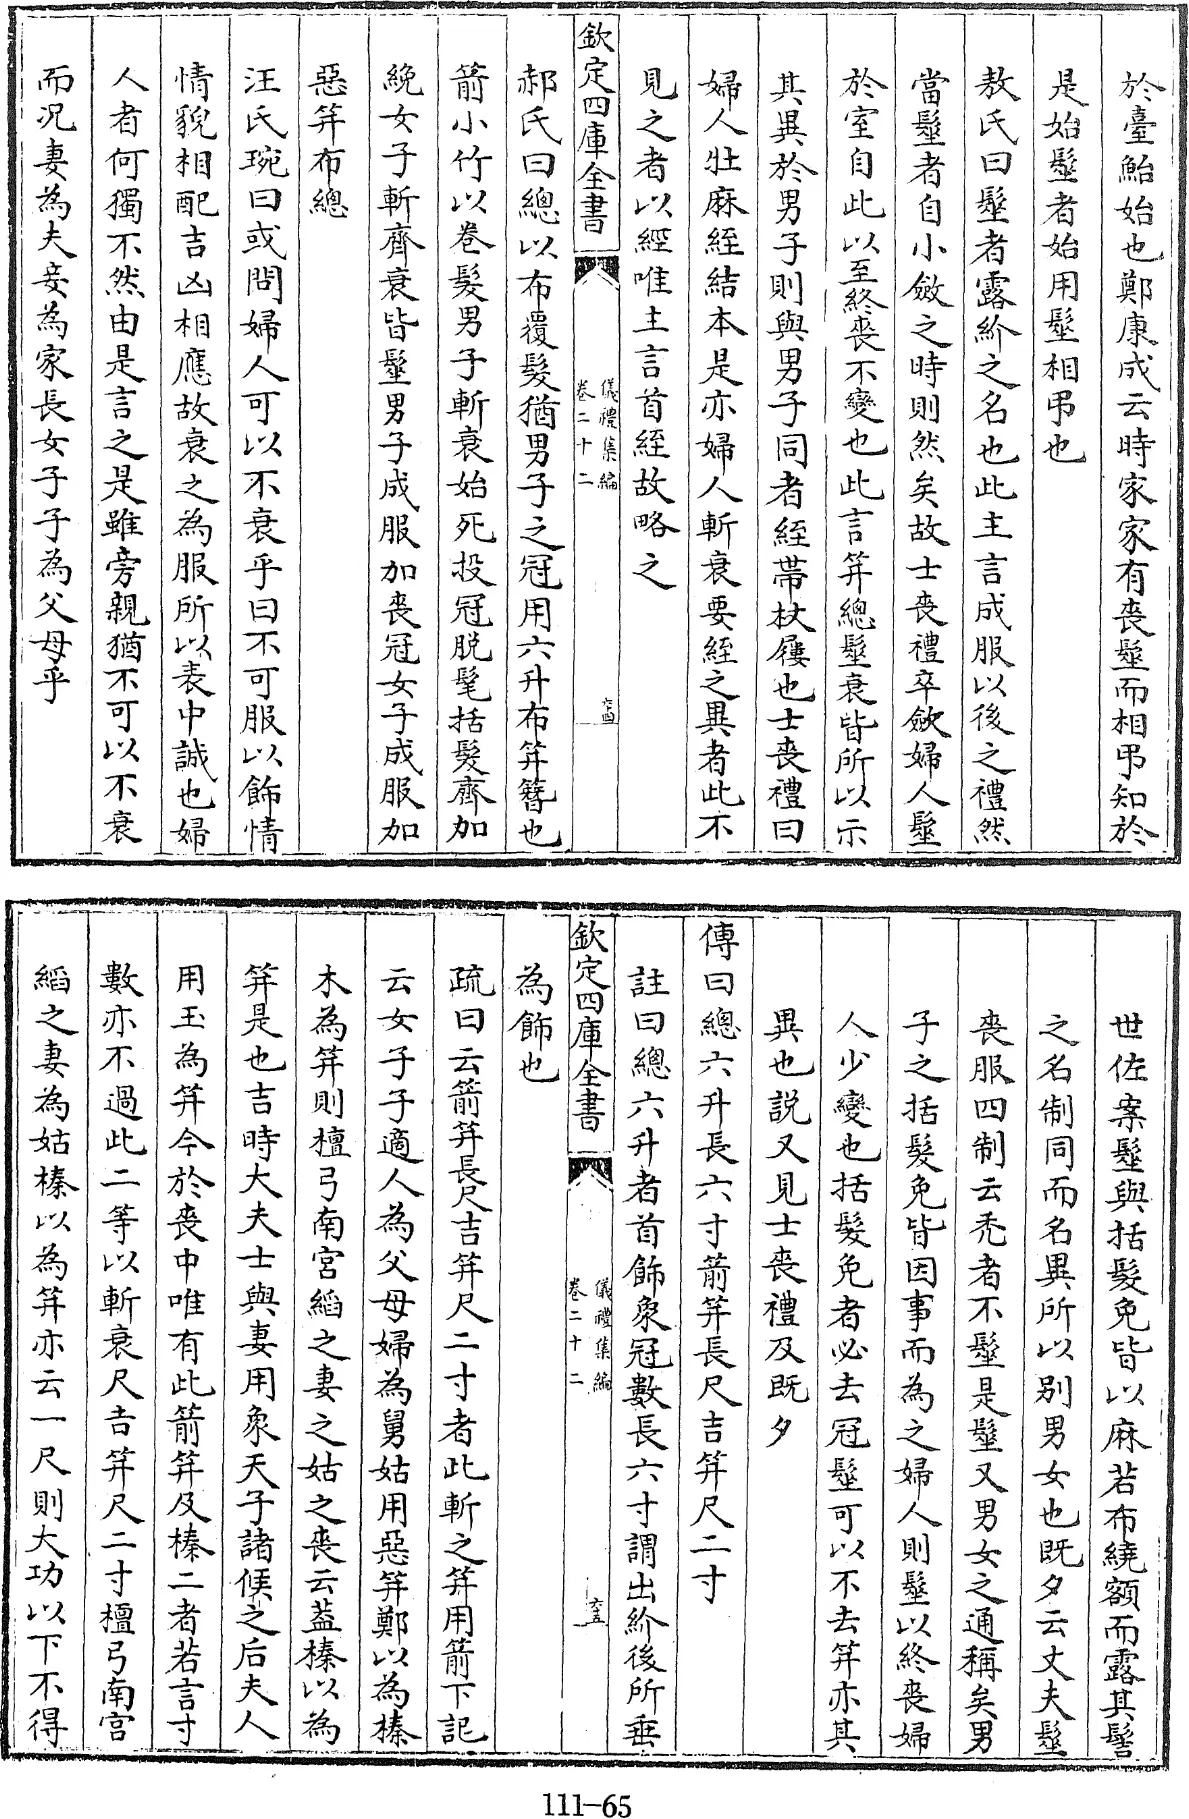 於臺鮐始也鄭康成云時家家有喪髽而相弔知於
是始髽者始用髽相弔也
敖氏曰髽者露紒之名也此主言成服以後之禮然
當髽者自小斂之時則然矣故士喪禮卒斂婦人髽
於室自此以至終喪不變也此言笄總髽衰皆所以示
其異於男子則與男子同者絰帶杖屨也士喪禮曰
婦人牡麻絰結本是亦婦人斬衰要絰之異者此不
見之者以經唯主言首絰故略之
欽定四庫全書
儀禮集編
卷二十二
六十四
郝氏曰總以布覆髮猶男子之冠用六升布笄簪也
箭小竹以卷髮男子斬衰始死投冠脱髦括髮齊加
絻女子斬齊衰皆髽男子成服加喪冠女子成服加
惡笄布總
汪氏琬曰或問婦人可以不衰乎曰不可服以飾情
情貌相配吉凶相應故衰之為服所以表中誠也婦
人者何獨不然由是言之是雖旁親猶不可以不衰
而况妻為夫妾為家長女子子為父母乎
世佐案髽與括髮免皆以麻若布繞額而露其髻
之名制同而名異所以别男女也既夕云丈夫髽
喪服四制云秃者不髽是髽又男女之通稱矣男
子之括髮免皆因事而為之婦人則髽以終喪婦
人少變也括髮免者必去冠髽可以不去笄亦其
異也説又見士喪禮及既夕
傳曰總六升長六寸箭笄長尺吉笄尺二寸
註曰總六升者首飾象冠數長六寸謂出紒後所垂
欽定四庫全書
儀禮集編
卷二十二
六十五
為飾也
疏曰云箭笄長尺吉笄尺二寸者此斬之笄用箭下記
云女子子適人為父母婦為舅姑用惡笄鄭以為榛
木為笄則檀弓南宫縚之妻之姑之喪云葢榛以為
笄是也吉時大夫士與妻用象天子諸侯之后夫人
用玉為笄今於喪中唯有此箭笄及榛二者若言寸
數亦不過此二等以斬衰尺吉笄尺二寸檀弓南宫
縚之妻為姑榛以為笄亦云一尺則大功以下不得
111-65